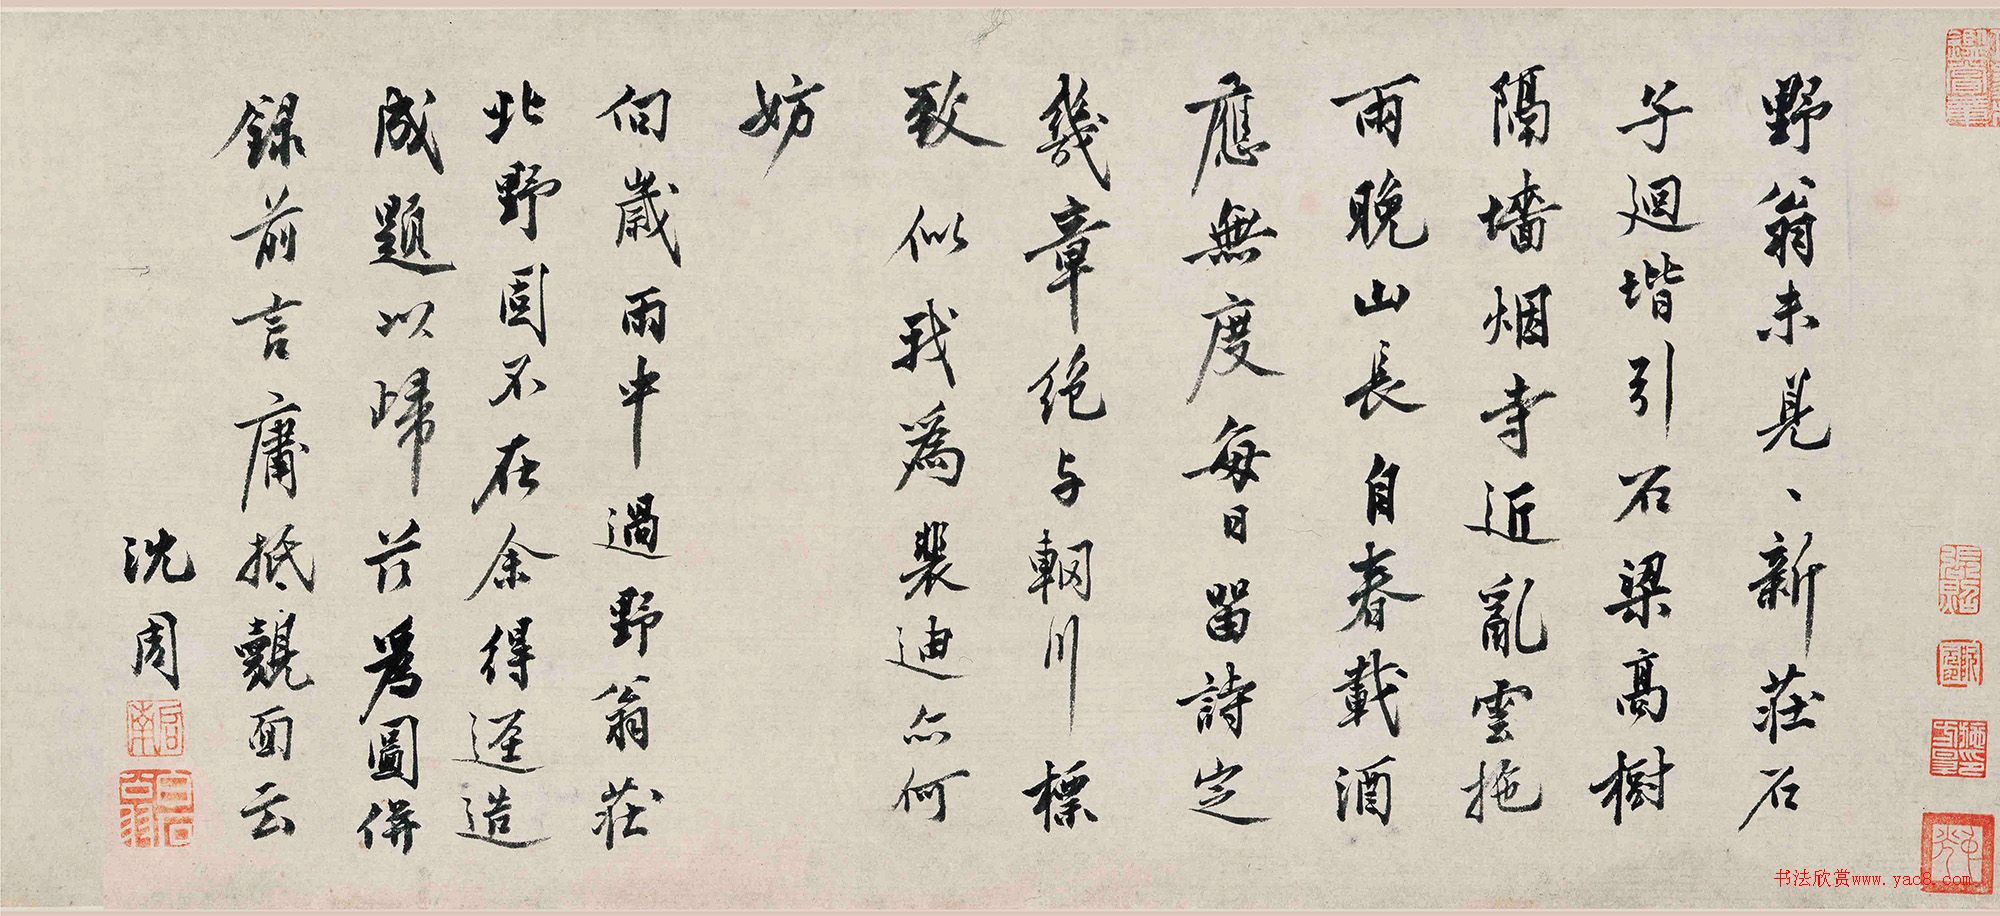 野翁未見、新莊石
子迴堦引石梁高樹
隔墻烟寺近亂雲拖
雨晚山長自春載酒
應無度每日留詩定
幾章絶与輞川標
致似我為裴迪亦何
妨
向歲雨中過野翁莊
比野固不在余得逕造
成題以歸茲為圖併
錄前言庸抵覿面云
沈周
啟南
白石翁
书法欣赏www.yac8.com